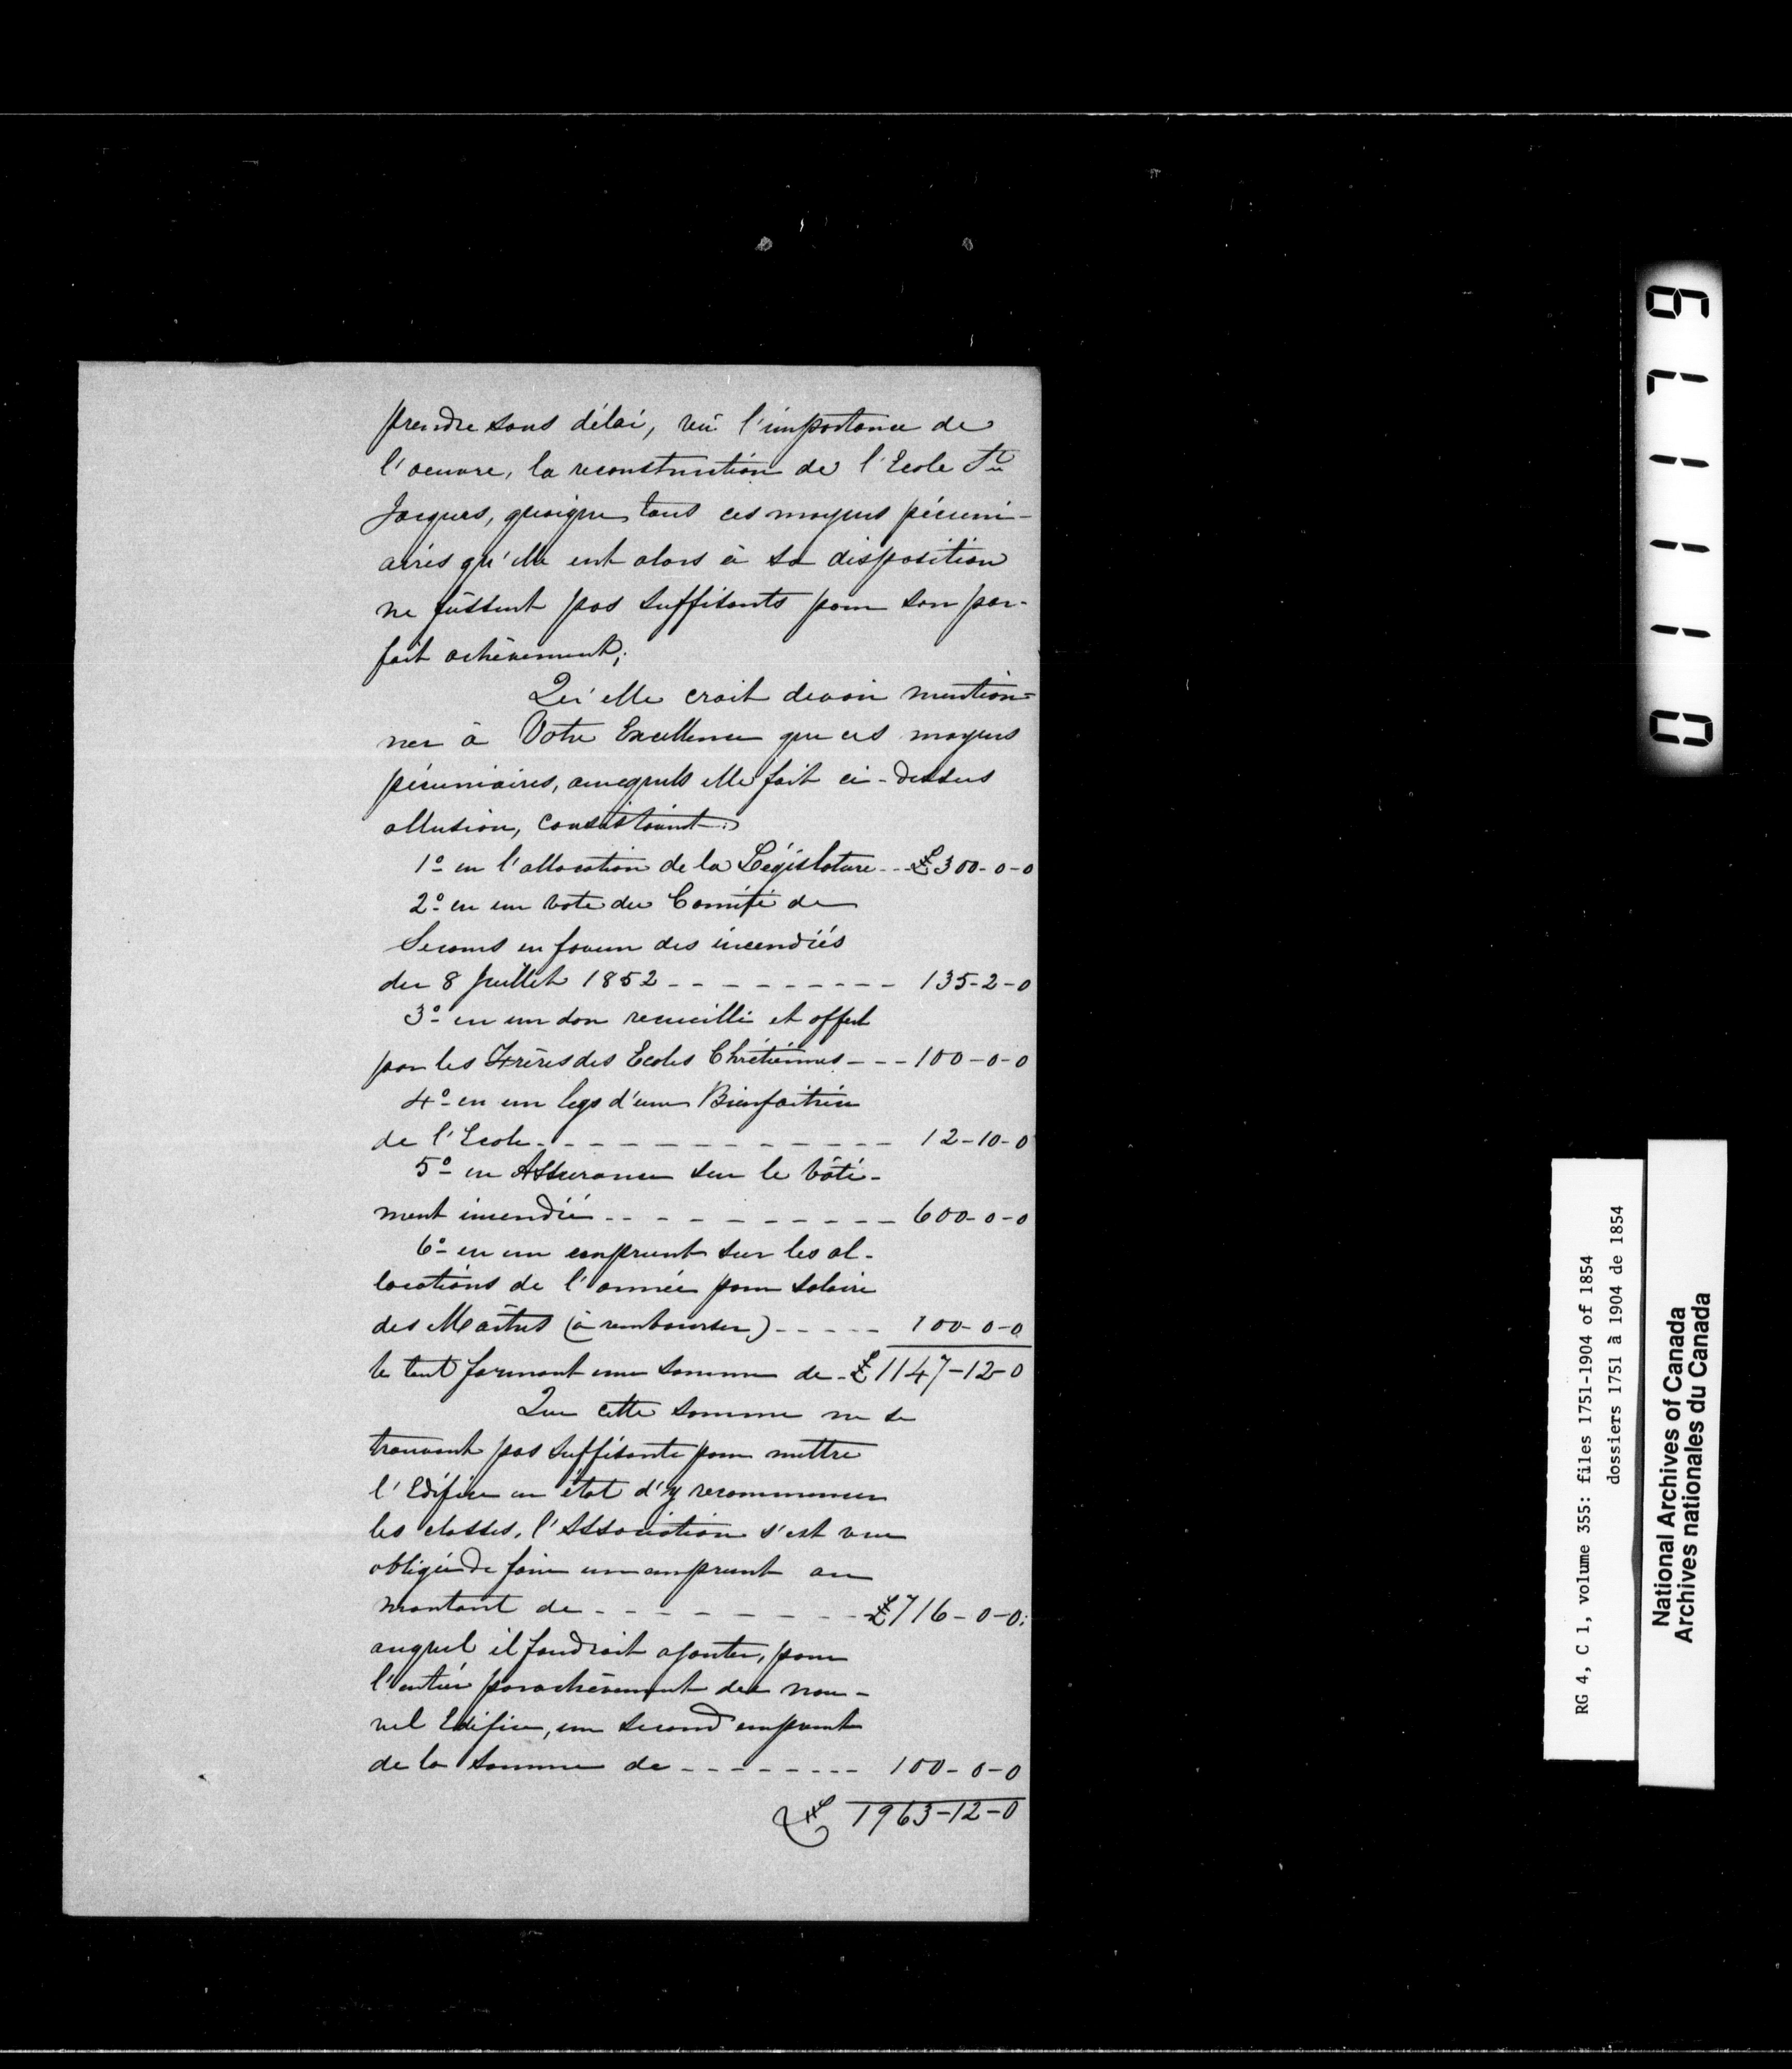 prendre sans délai, vû l'importance de
l'oeuvre, la reconstruction de l'Ecole St
Jacques, quoique tous ces moyens pécuni-
aires qu'elle eut alors à sa disposition
ne fûssent pas suffisants pour son par-
fait achèvement;
Qu'elle croit devoir mention-
ner à Votre Excellence que ces moyens
pécuniaires, auxquels elle fait ci-dessus
allusion, consistaient:
1º en l'allocation de la Législature---£300-0-0
2º en un vote du Comité de
Secours en faveur des incendiés
du 8 Juillet 1852 - - - - - - - - - 135-2-0
3º en un don recueilli et offert
par les Frères des Ecoles Chrétiennes - - - 100-0-0
4º en un legs d'une Bienfaitrice
de l'Ecole - - - - - - - - - - - - 12-10-0
5º en Assurance sur le bâti-
ment incendié - - - - - - - - - - 600-0-0
6º en un emprunt sur les al-
locations de l'année pour salaire
des Maîtres (à rembourser) - - - - - 100-0-0
le tout formant une somme de - £1147-12-0
Que cette somme ne se
trouvant pas suffisante pour mettre
l'Edifice en état d'y recommencer
les classes, l'Association s'est vue
obligée de faire un emprunt au
montant de - - - - - - - - - £716-0-0;
auquel il faudrait ajouter, pour
l'entier parachèvement du nou-
vel Edifice, un second emprunt
de la somme de - - - - - - - - 100-0-0
£ 1963-12-0
01119
RG 4, C 1, volume 355: files 1751-1904 of 1854
dossiers 1751 à 1904 de 1854
National Archives of Canada
Archives nationales du Canada